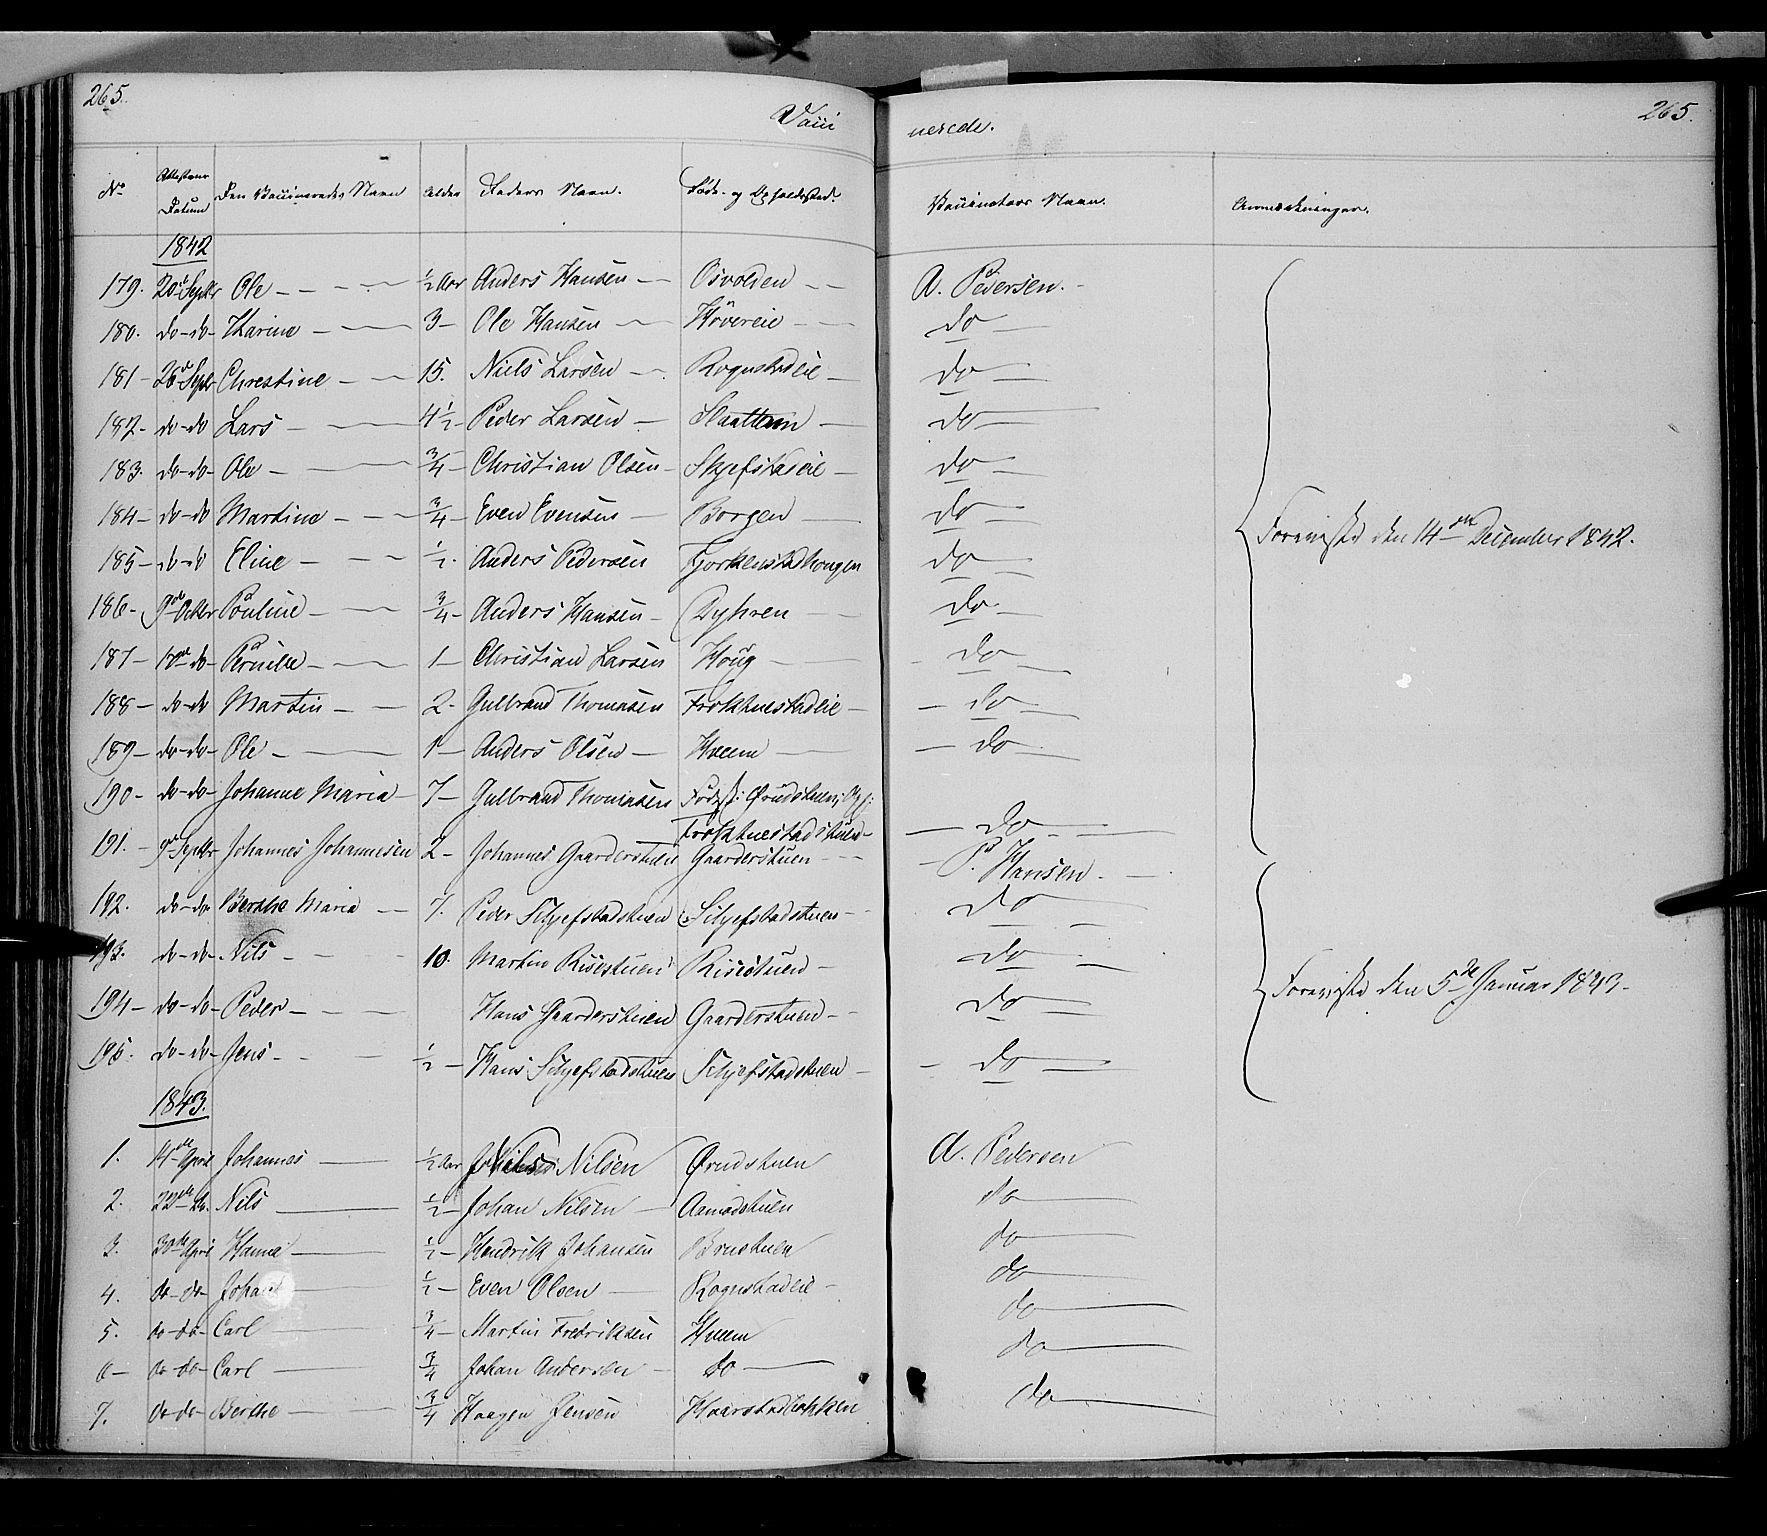 265. 265.
Vacci nerede.
No Attestens Datum Den Vaccineredes Navn Alder Faders Navn. Føde- og Opholdssted. Vaccinateurs Navn. Anmærkninger.
1842
179. 20de Septbr Ole ½ Aar Anders Hansen Osvolden A. Pedersen.
180. do-do- Karine 3- Ole Hansen Høvereie do
181- 26de Septbr Chrestine 15. Niels Larsen Rognstadeie do
182- do-do Lars 4½- Peder Larsen Slaattem do
183. do-do- Ole ¾- Christian Olsen Skjefstadeie do
184- do-do Martine ¾- Even Evensen Borgen do
185- do-do Eline ½. Anders Pedersen Fjorkenstadhougen do
Forevigste den 14de December 1842.
186- 9de Octbr Pouline ¾- Anders Hansen Dyhren do
187- do- Pernille 1- Christian Larsen Houg do
188- do-do Martin 2- Gulbrand Thomasen Frokhnestadeie do
189- do-do- Ole 1- Anders Olsen Hveem do
190- do-do- Johanne Maria 7- Gulbrand Thomasen Fødest: Ørudstuen; Oph:
Frokhnestadstuen do
191. 9de Septbr Johannes Johannesen 2- Johannes Gaarderstuen Gaarderstuen P. Hansen.
192. do-do- Berthe Maria 7. Peder Skjefstadstuen Skjefstadstuen do
193. do-do- Nils 10. Martin Risestuen Risestuen do
194- do-do- Peder Hans Gaarderstuen Gaarderstuen do
den 5te Januar 1843.
195. do-do- Jens ½- Hans Skjefstadstuen Skjefstadstuen do
1843.
1. 14de April Johannes ½ Aar Nilsen Ørudstuen A. Pedersen
2. 22de do. Nils ½- Johan Nilsen Aamodstuen do
3. 30de April Hanna ½- Hendrik Johansen Brustuen do
4. do-do- Johan ½- Even Olsen Rognstadeie do
5. do-do- Carl ¾- Martin Fredriksen Hveem do
6- do-do- Carl ¾ Johan Andersen do do
7. do-do- Berthe ¾ Haagen Jensen Haarstadbakken do